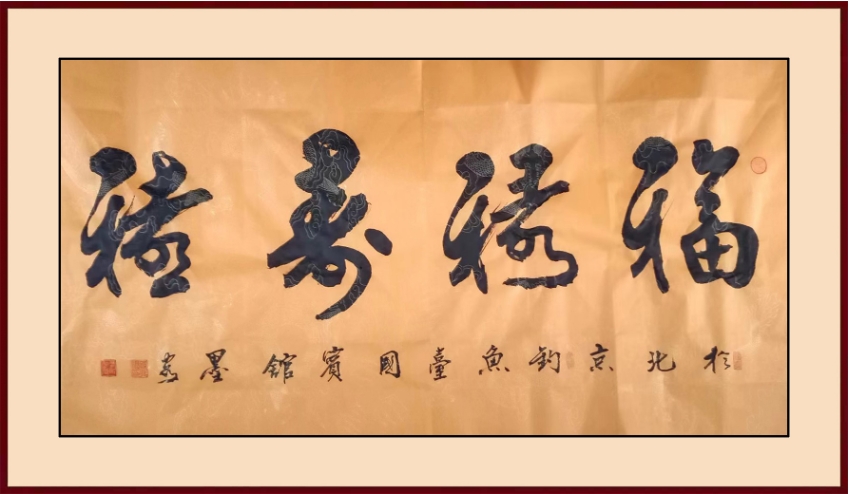 福禄寿禧
於北京釣魚臺國賓館墨